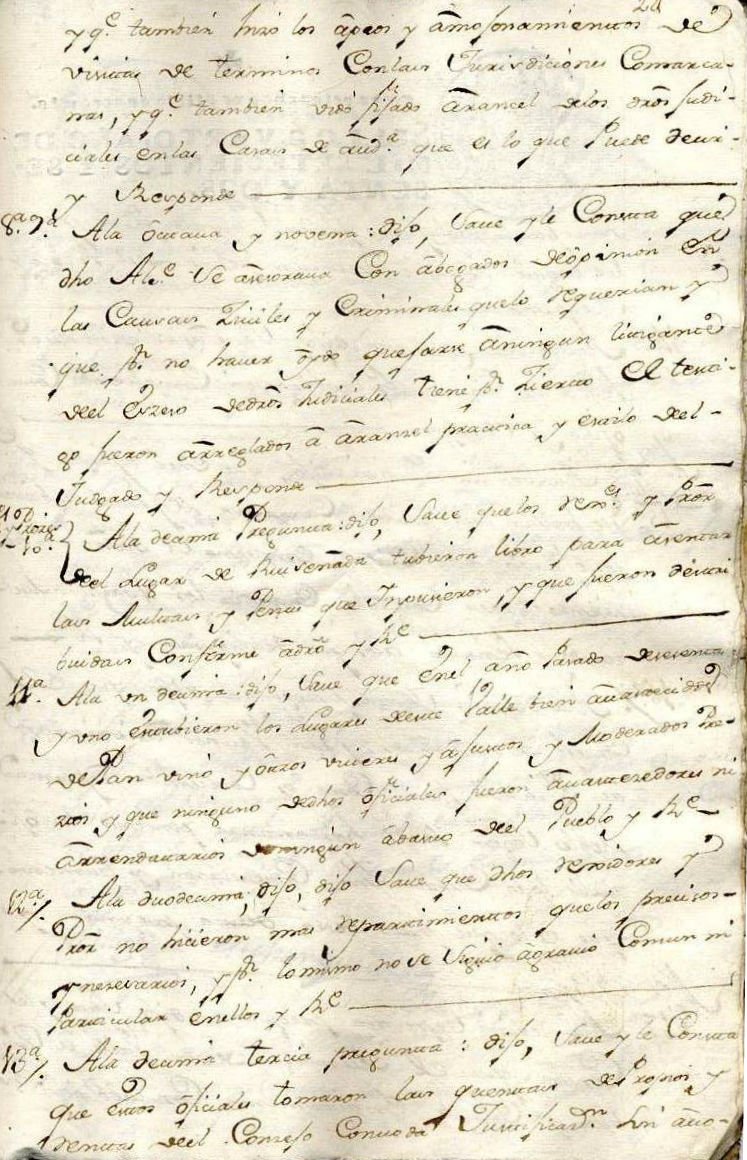 y q.e tambien hizo los apeos y amojonamientos de
visitas de terminos Conlas Jurisdiciones Comarca-
nas, y q.e tambien vido fijado Aranzel delos dros Judi-
ciales enlas Casas de aud.a que es lo que Puede decir
y Responde
8.a 9.a Ala Octaua y novena: dijo, Saue y le Consta que
dho Al.e se asesoraua Con abogados de opinion en
las Causas Ziuiles y Criminales quelo requerian y
que pr no hauer oydo quejarse aningun litigante
deel Exzeso dedros Judiciales tiene pr Zierto el testi-
go fueron arreglados a aranzel practica y estilo del
Judgado y Responde
10.a Ala decima Pregunta: dijo, Saue quelos Rexes y Pror
deel Lugar de Ruiseñada tubieron libro para asentar
las Multas y Penas que Inpusieron, y que fueron distri
buidas Conforme adro y Re
11.a Ala un decima: dijo, Saue que enel año Pasado desesenta
y uno estubieron los Lugares deste Valle bien auastecidos
de Pan vino y otros viueres y a justos y Moderados Pre-
zios y que ninguno dedhos ofiziales fueron auastezedores ni
arrendatarios deningun abasto deel Pueblo y Re
12.a Ala duodecima; dijo, dijo Saue que dhos Rexidores y
Pror no hicieron mas repartimientos quelos precisos
y nesesarios, y pr lo mismo no se siguio agrauio Comun ni
Particular enellos y Re
13.a Ala decima tercia pregunta: dijo, Saue y le Consta
que estos ofiziales tomaron las quentas de Propios y
Rentas deel Consejo Con toda Justificaz.n sin